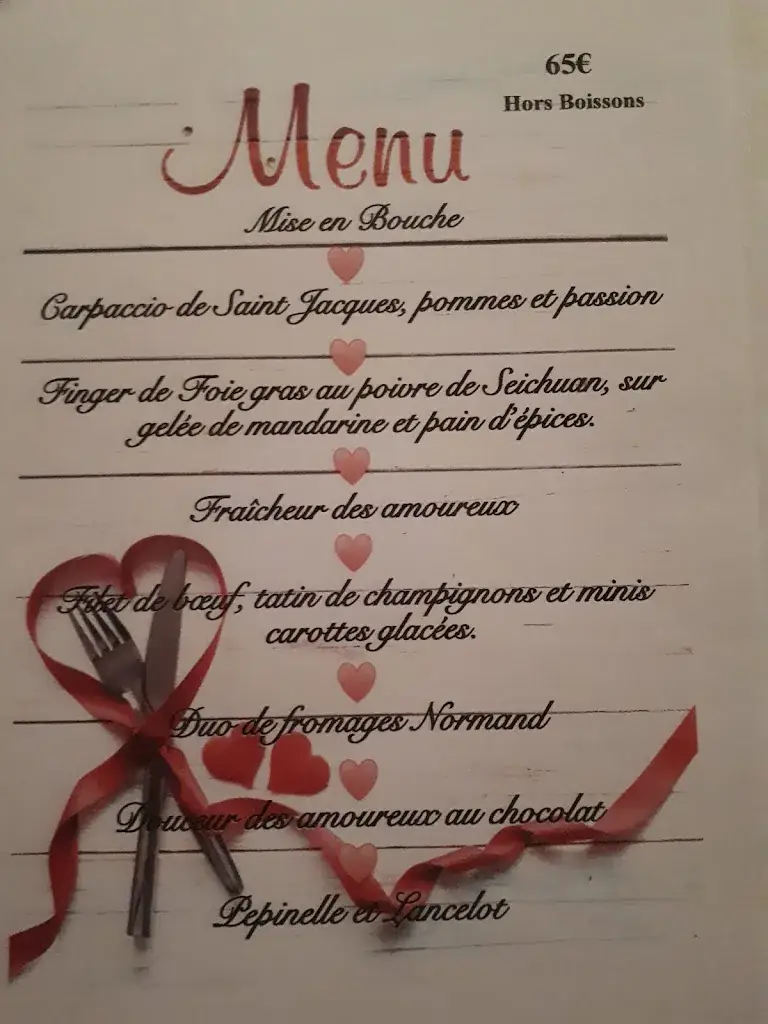 65€
Hors Boissons
Menu
Mise en Bouche
Carpaccio de Saint Jacques, pommes et passion
Finger de Foie gras au poivre de Seichuan, sur
gelée de mandarine et pain d'épices.
Fraîcheur des amoureux
Filet de bœuf, tatin de champignons et minis
carottes glacées.
Duo de fromages Normand
Douceur des amoureux au chocolat
Pepinelle et Lancelot